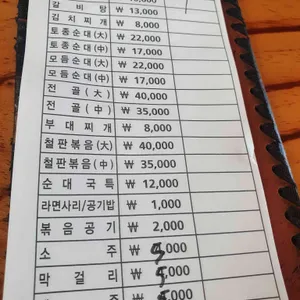 갈 비 탕 ₩ 13,000
김 치 찌 개 ₩ 8,000
토종순대(大) ₩ 22,000
토종순대(中) ₩ 17,000
모듬순대(大) ₩ 22,000
모듬순대(中) ₩ 17,000
전 골 (大) ₩ 40,000
전 골 (中) ₩ 35,000
부 대 찌 개 ₩ 8,000
철판볶음(大) ₩ 40,000
철판볶음(中) ₩ 35,000
순 대 국 특 ₩ 12,000
라면사리/공기밥 ₩ 1,000
볶 음 공 기 ₩ 2,000
소 주 ₩ 5,000
막 걸 리 ₩ 5,000
주 ₩ 5,000